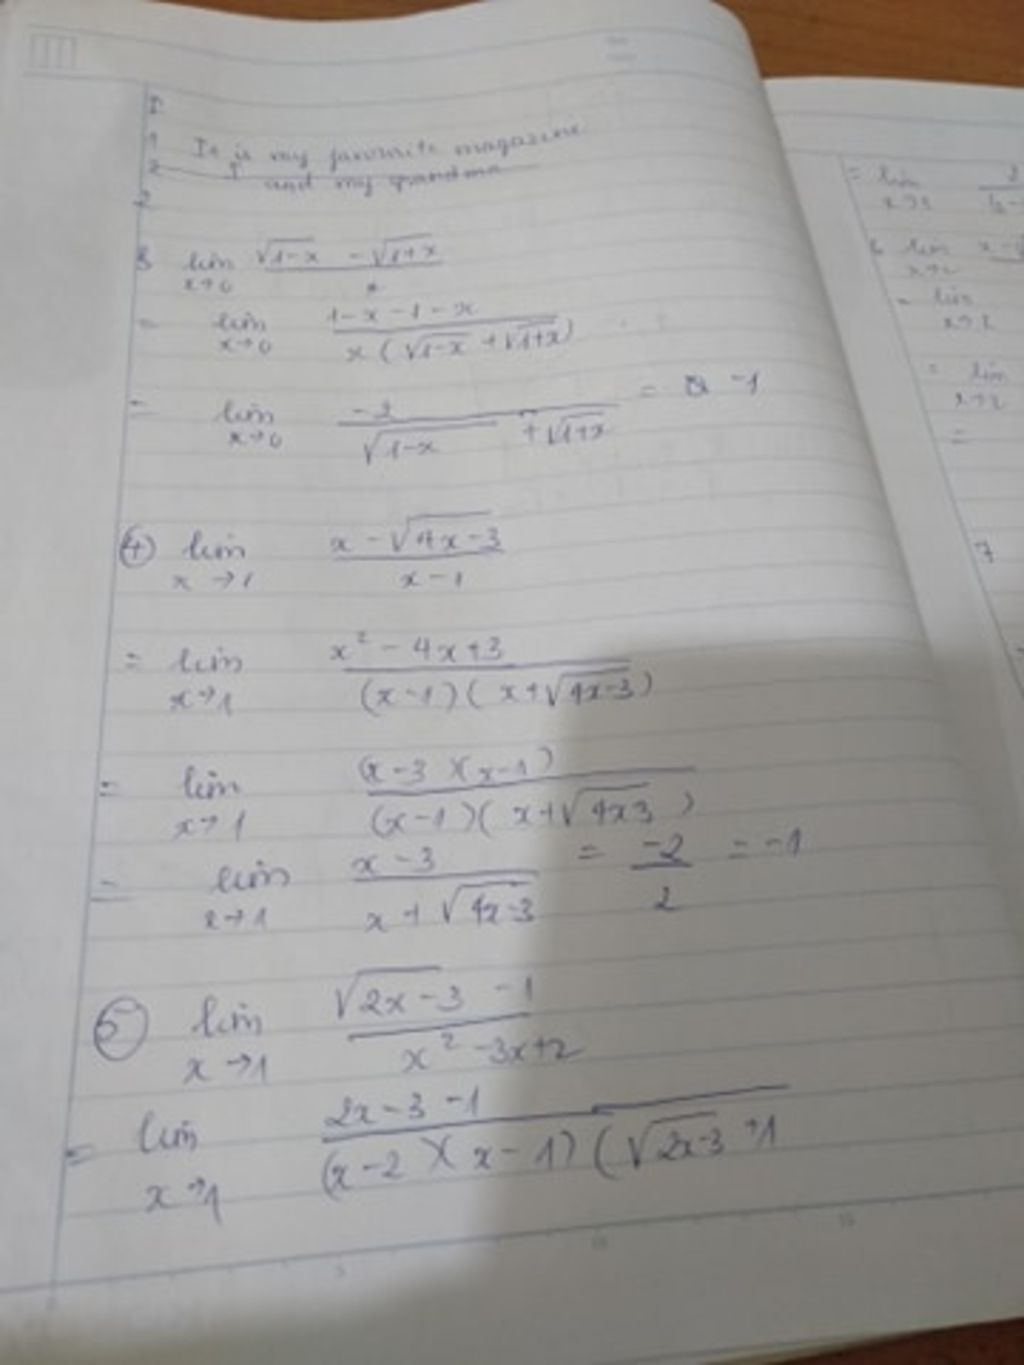 I
1 It is my favorite magazine
2 and my grandma
2
3 lim x→0 √1-x - √1+x / x
= lim x→0 1-x-1-x / x(√1-x + √1+x)
= lim x→0 -2 / √1-x + √1+x = -1
④ lim x→1 x-√4x-3 / x-1
= lim x→1 x²-4x+3 / (x-1)(x+√4x-3)
= lim x→1 (x-3)(x-1) / (x-1)(x+√4x3)
= lim x→1 x-3 / x+√4x-3 = -2/2 = -1
⑤ lim x→1 √2x-3 -1 / x²-3x+2
= lim x→1 2x-3-1 / (x-2)(x-1)(√2x-3+1
= lim x→2
lim
= lim x→2
= lim x→2
=
7